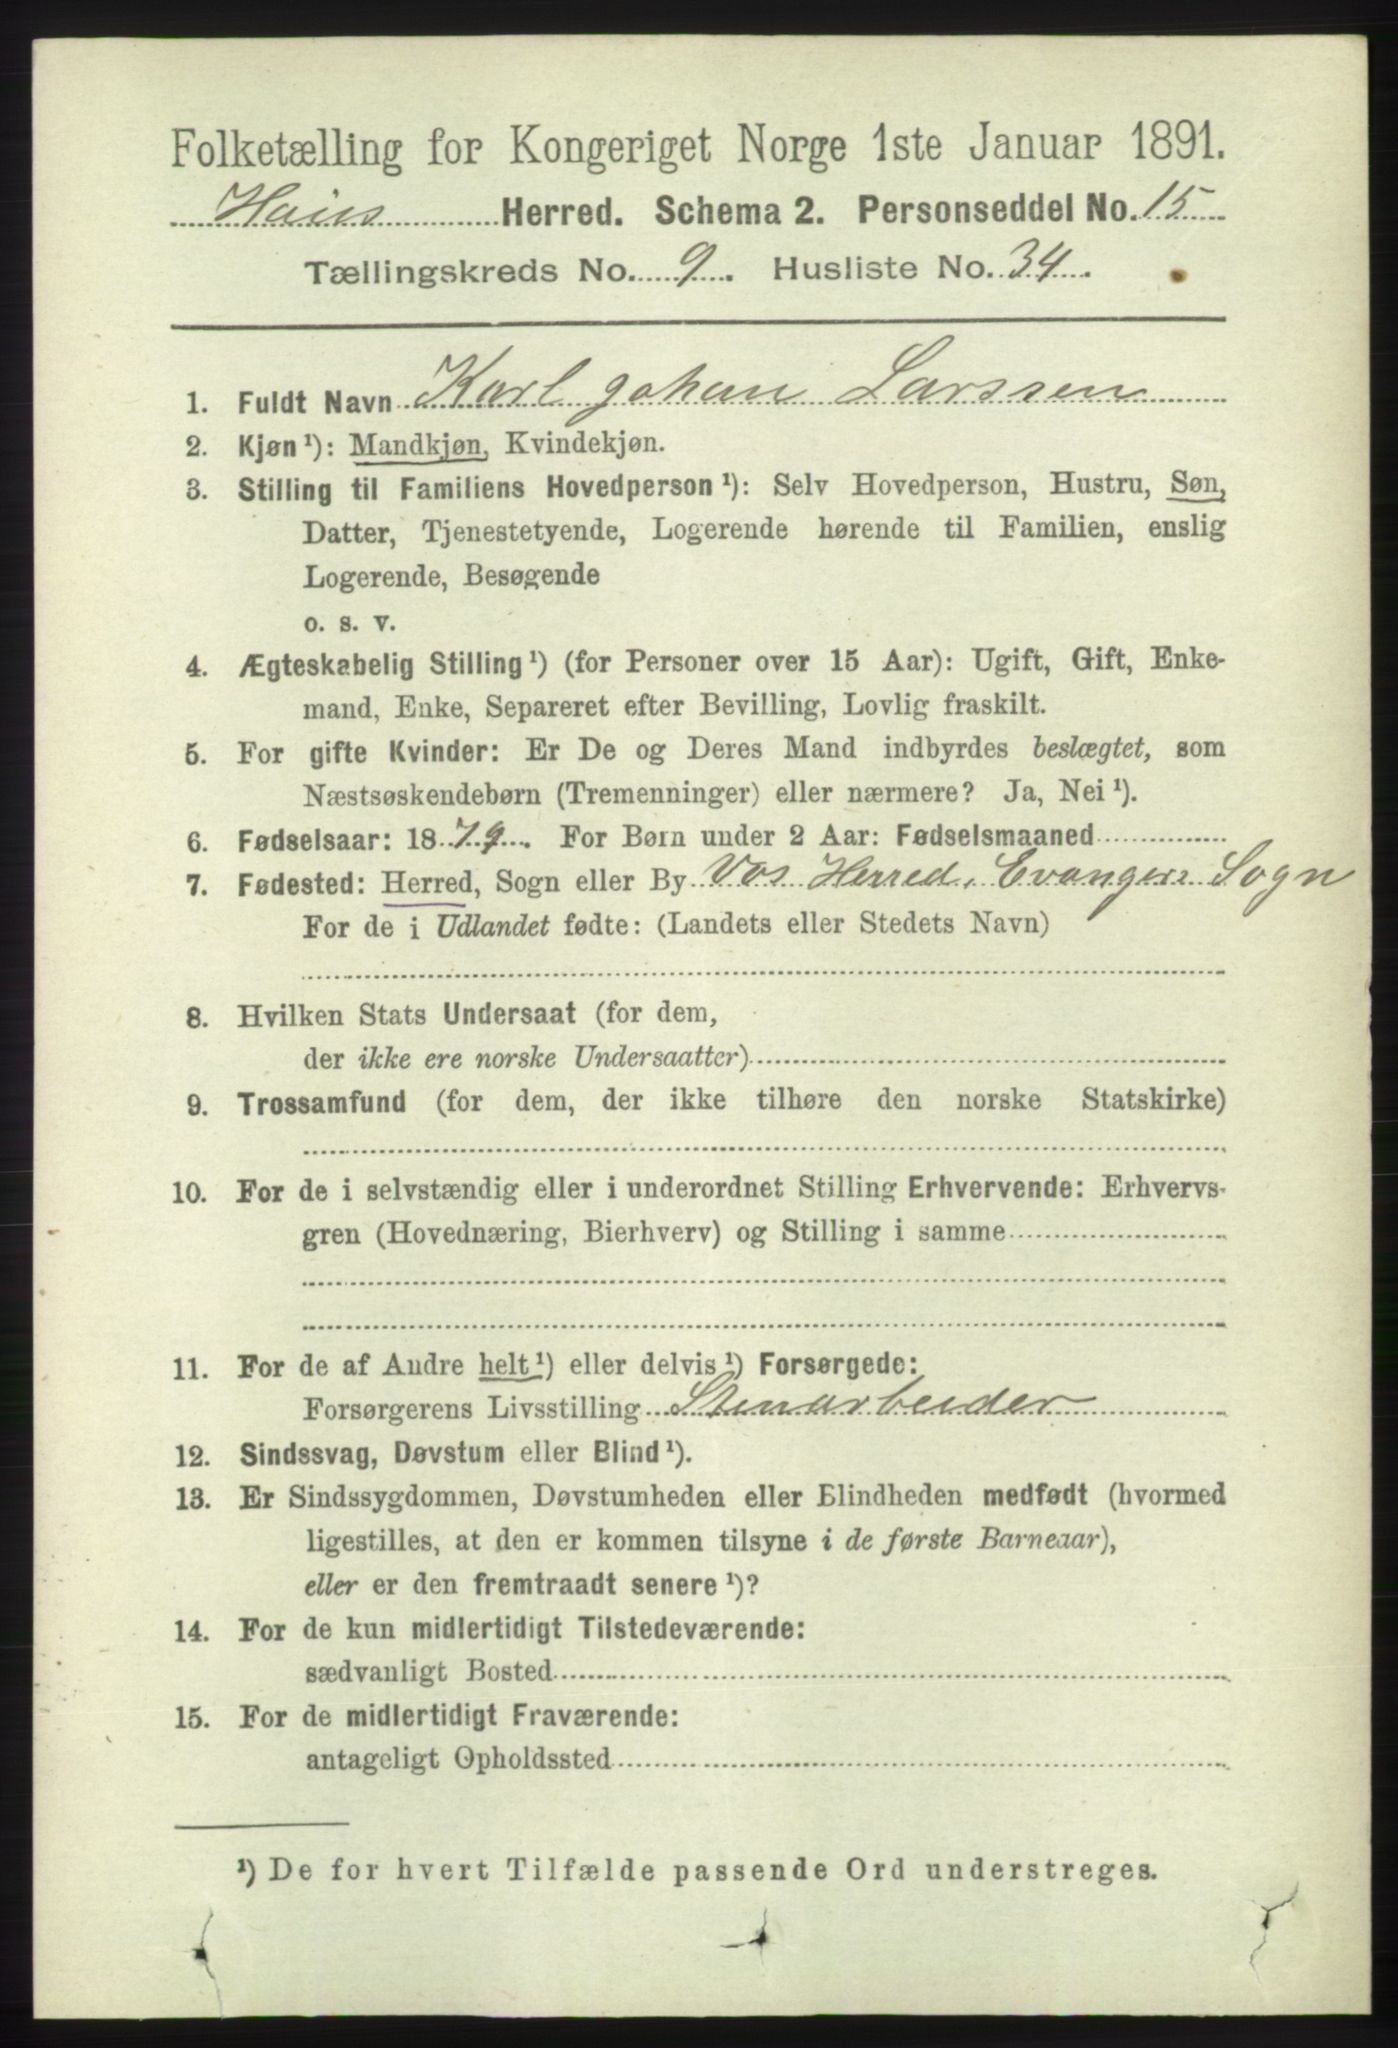 Folketælling for Kongeriget Norge 1ste Januar 1891.
Haus Herred. Schema 2. Personseddel No. 15
Tællingskreds No. 9. Husliste No. 34.
1. Fuldt Navn Karl Johan Larssen
2. Kjøn¹): Mandkjøn, Kvindekjøn.
3. Stilling til Familiens Hovedperson¹): Selv Hovedperson, Hustru, Søn,
Datter, Tjenestetyende, Logerende hørende til Familien, enslig
Logerende, Besøgende
o. s. v.
4. Ægteskabelig Stilling¹) (for Personer over 15 Aar): Ugift, Gift, Enke-
mand, Enke, Separeret efter Bevilling, Lovlig fraskilt.
5. For gifte Kvinder: Er De og Deres Mand indbyrdes beslægtet, som
Næstsøskendebørn (Tremenninger) eller nærmere? Ja, Nei¹).
6. Fødselsaar: 1879. For Børn under 2 Aar: Fødselsmaaned
7. Fødested: Herred, Sogn eller By Vos Herred, Evanger Sogn
For de i Udlandet fødte: (Landets eller Stedets Navn)
8. Hvilken Stats Undersaat (for dem,
der ikke ere norske Undersaatter)
9. Trossamfund (for dem, der ikke tilhøre den norske Statskirke)
10. For de i selvstændig eller i underordnet Stilling Erhvervende: Erhvervs-
gren (Hovednæring, Bierhverv) og Stilling i samme
11. For de af Andre helt¹) eller delvis¹) Forsørgede:
Forsørgerens Livsstilling Stenarbeider
12. Sindssvag, Døvstum eller Blind¹).
13. Er Sindssygdommen, Døvstumheden eller Blindheden medfødt (hvormed
ligestilles, at den er kommen tilsyne i de første Barneaar),
eller er den fremtraadt senere¹)?
14. For de kun midlertidigt Tilstedeværende:
sædvanligt Bosted
15. For de midlertidigt Fraværende:
antageligt Opholdssted
¹) De for hvert Tilfælde passende Ord understreges.